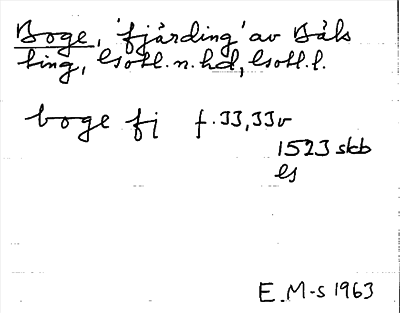 Boge, 'fjärding' av Bäls
ting, Gotl. n. hd, Gotl. l.
boge fj f. 33, 33v
1523 skb
G
E. M-s 1963